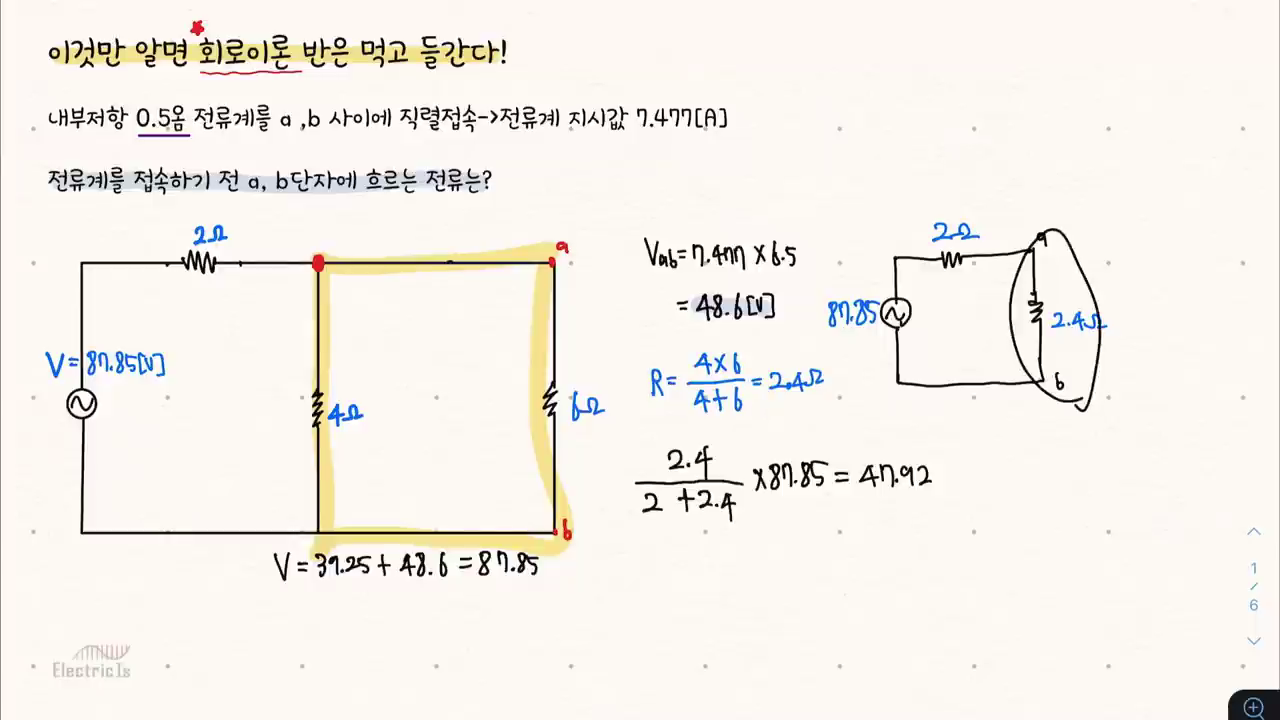 이것만 알면 회로이론 반은 먹고 들간다!
내부저항 0.5옴 전류계를 a ,b 사이에 직렬접속->전류계 지시값 7.477[A]
전류계를 접속하기 전 a, b단자에 흐르는 전류는?
2Ω
a
V=87.85[V]
4Ω
6Ω
b
V=39.25+48.6=87.85
Vab=7.477×6.5
=48.6[V]
R=4×6/4+6=2.4Ω
2.4/2+2.4×87.85=47.92
2Ω
a
87.85
2.4Ω
b
ElectricIs
1
/
6